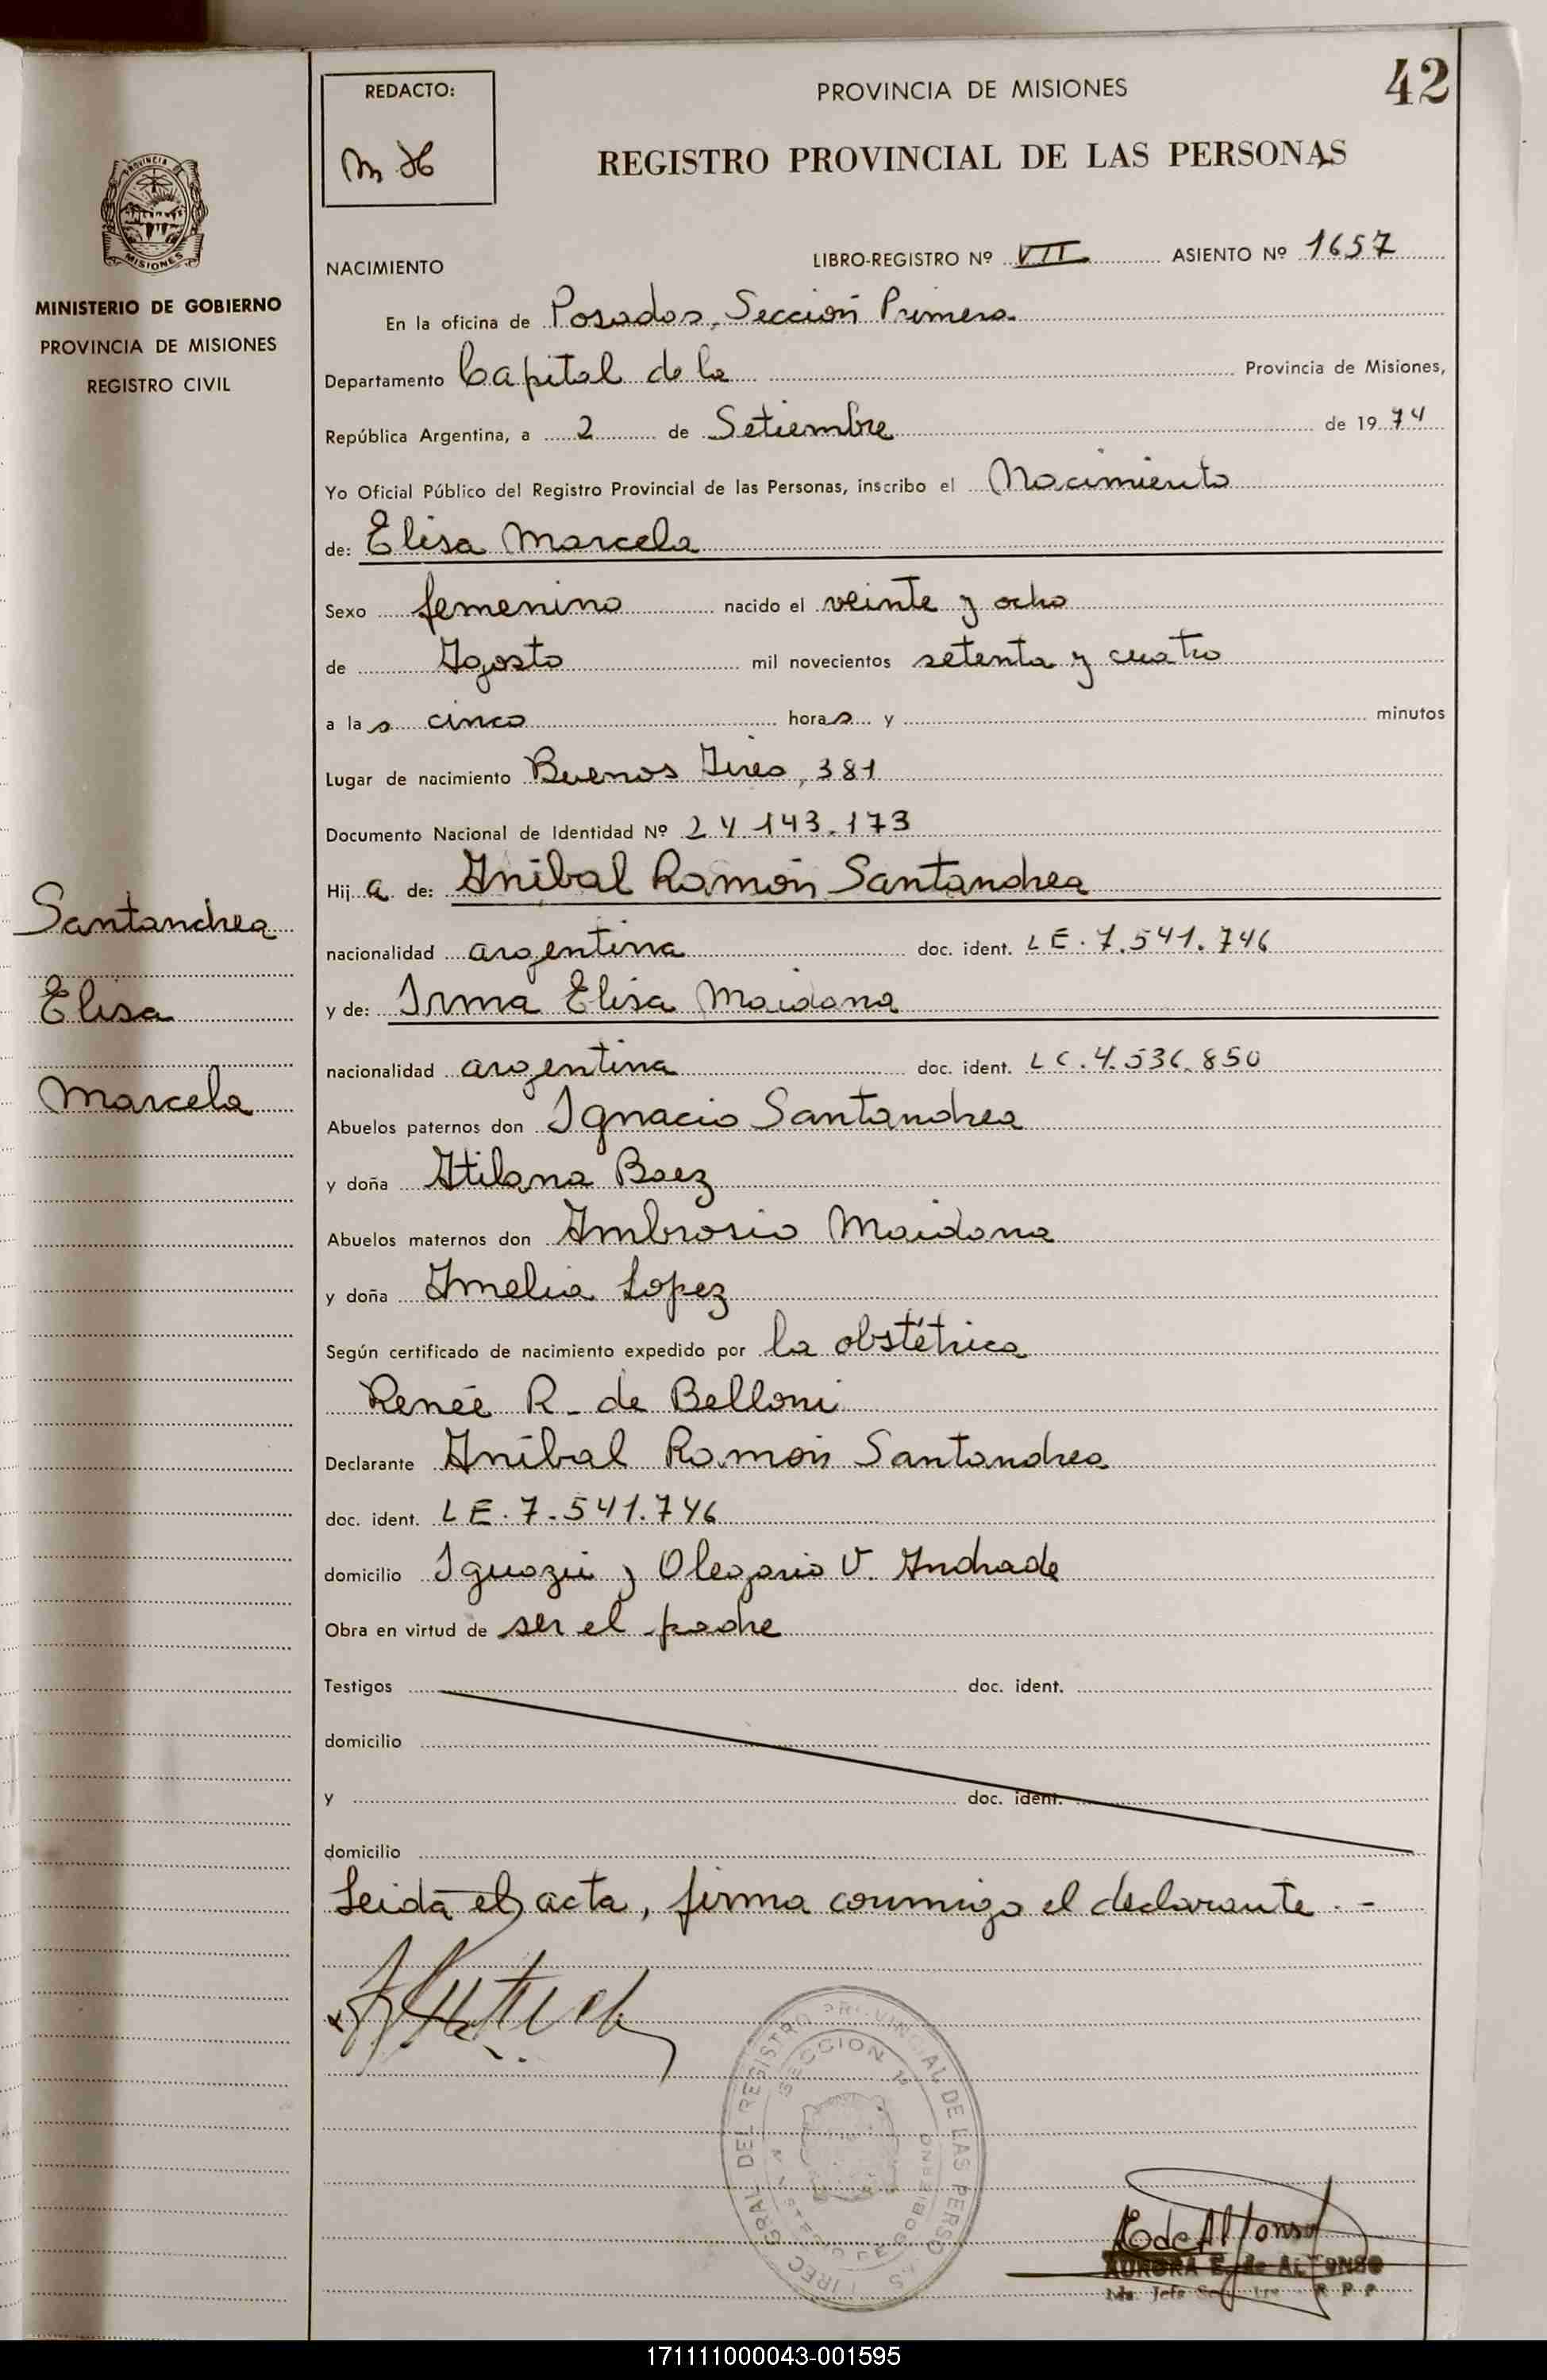 42
REDACTO:
PROVINCIA DE MISIONES
REGISTRO PROVINCIAL DE LAS PERSONAS
PROVINCIA
MISIONES
MINISTERIO DE GOBIERNO
PROVINCIA DE MISIONES
REGISTRO CIVIL
NACIMIENTO LIBRO-REGISTRO Nº VII ASIENTO Nº 1657
En la oficina de Posadas, Sección Primera
Departamento Capital de la Provincia de Misiones,
República Argentina, a 2 de Setiembre de 1974
Yo Oficial Público del Registro Provincial de las Personas, inscribo el Nacimiento
de: Elisa Marcela
Sexo femenino nacido el veinte y ocho
de Agosto mil novecientos setenta y cuatro
a las cinco horas y minutos
Lugar de nacimiento Buenos Aires, 381
Documento Nacional de Identidad Nº 24.143.173
Hija de: Aníbal Ramón Santandrea
nacionalidad argentina doc. ident. LE. 7.541.746
y de: Irma Elisa Maidana
nacionalidad argentina doc. ident. LC. 4.536.850
Abuelos paternos don Ignacio Santandrea
y doña Atilana Baez
Abuelos maternos don Ambrosio Maidana
y doña Amelia Lopez
Según certificado de nacimiento expedido por la obstétrica
Renée R. de Belloni
Declarante Aníbal Ramón Santandrea
doc. ident. LE. 7.541.746
domicilio Iguazú y Olegario V. Andrade
Obra en virtud de ser el padre
Testigos doc. ident.
domicilio
y doc. ident.
domicilio
Leida el acta, firma conmigo el declarante.-
Santandrea
Elisa
Marcela
REGISTRO PROVINCIAL DE LAS PERSO
SECCION 1ª
GOBIERNO
AURORA E. de ALFONSO
171111000043-001595